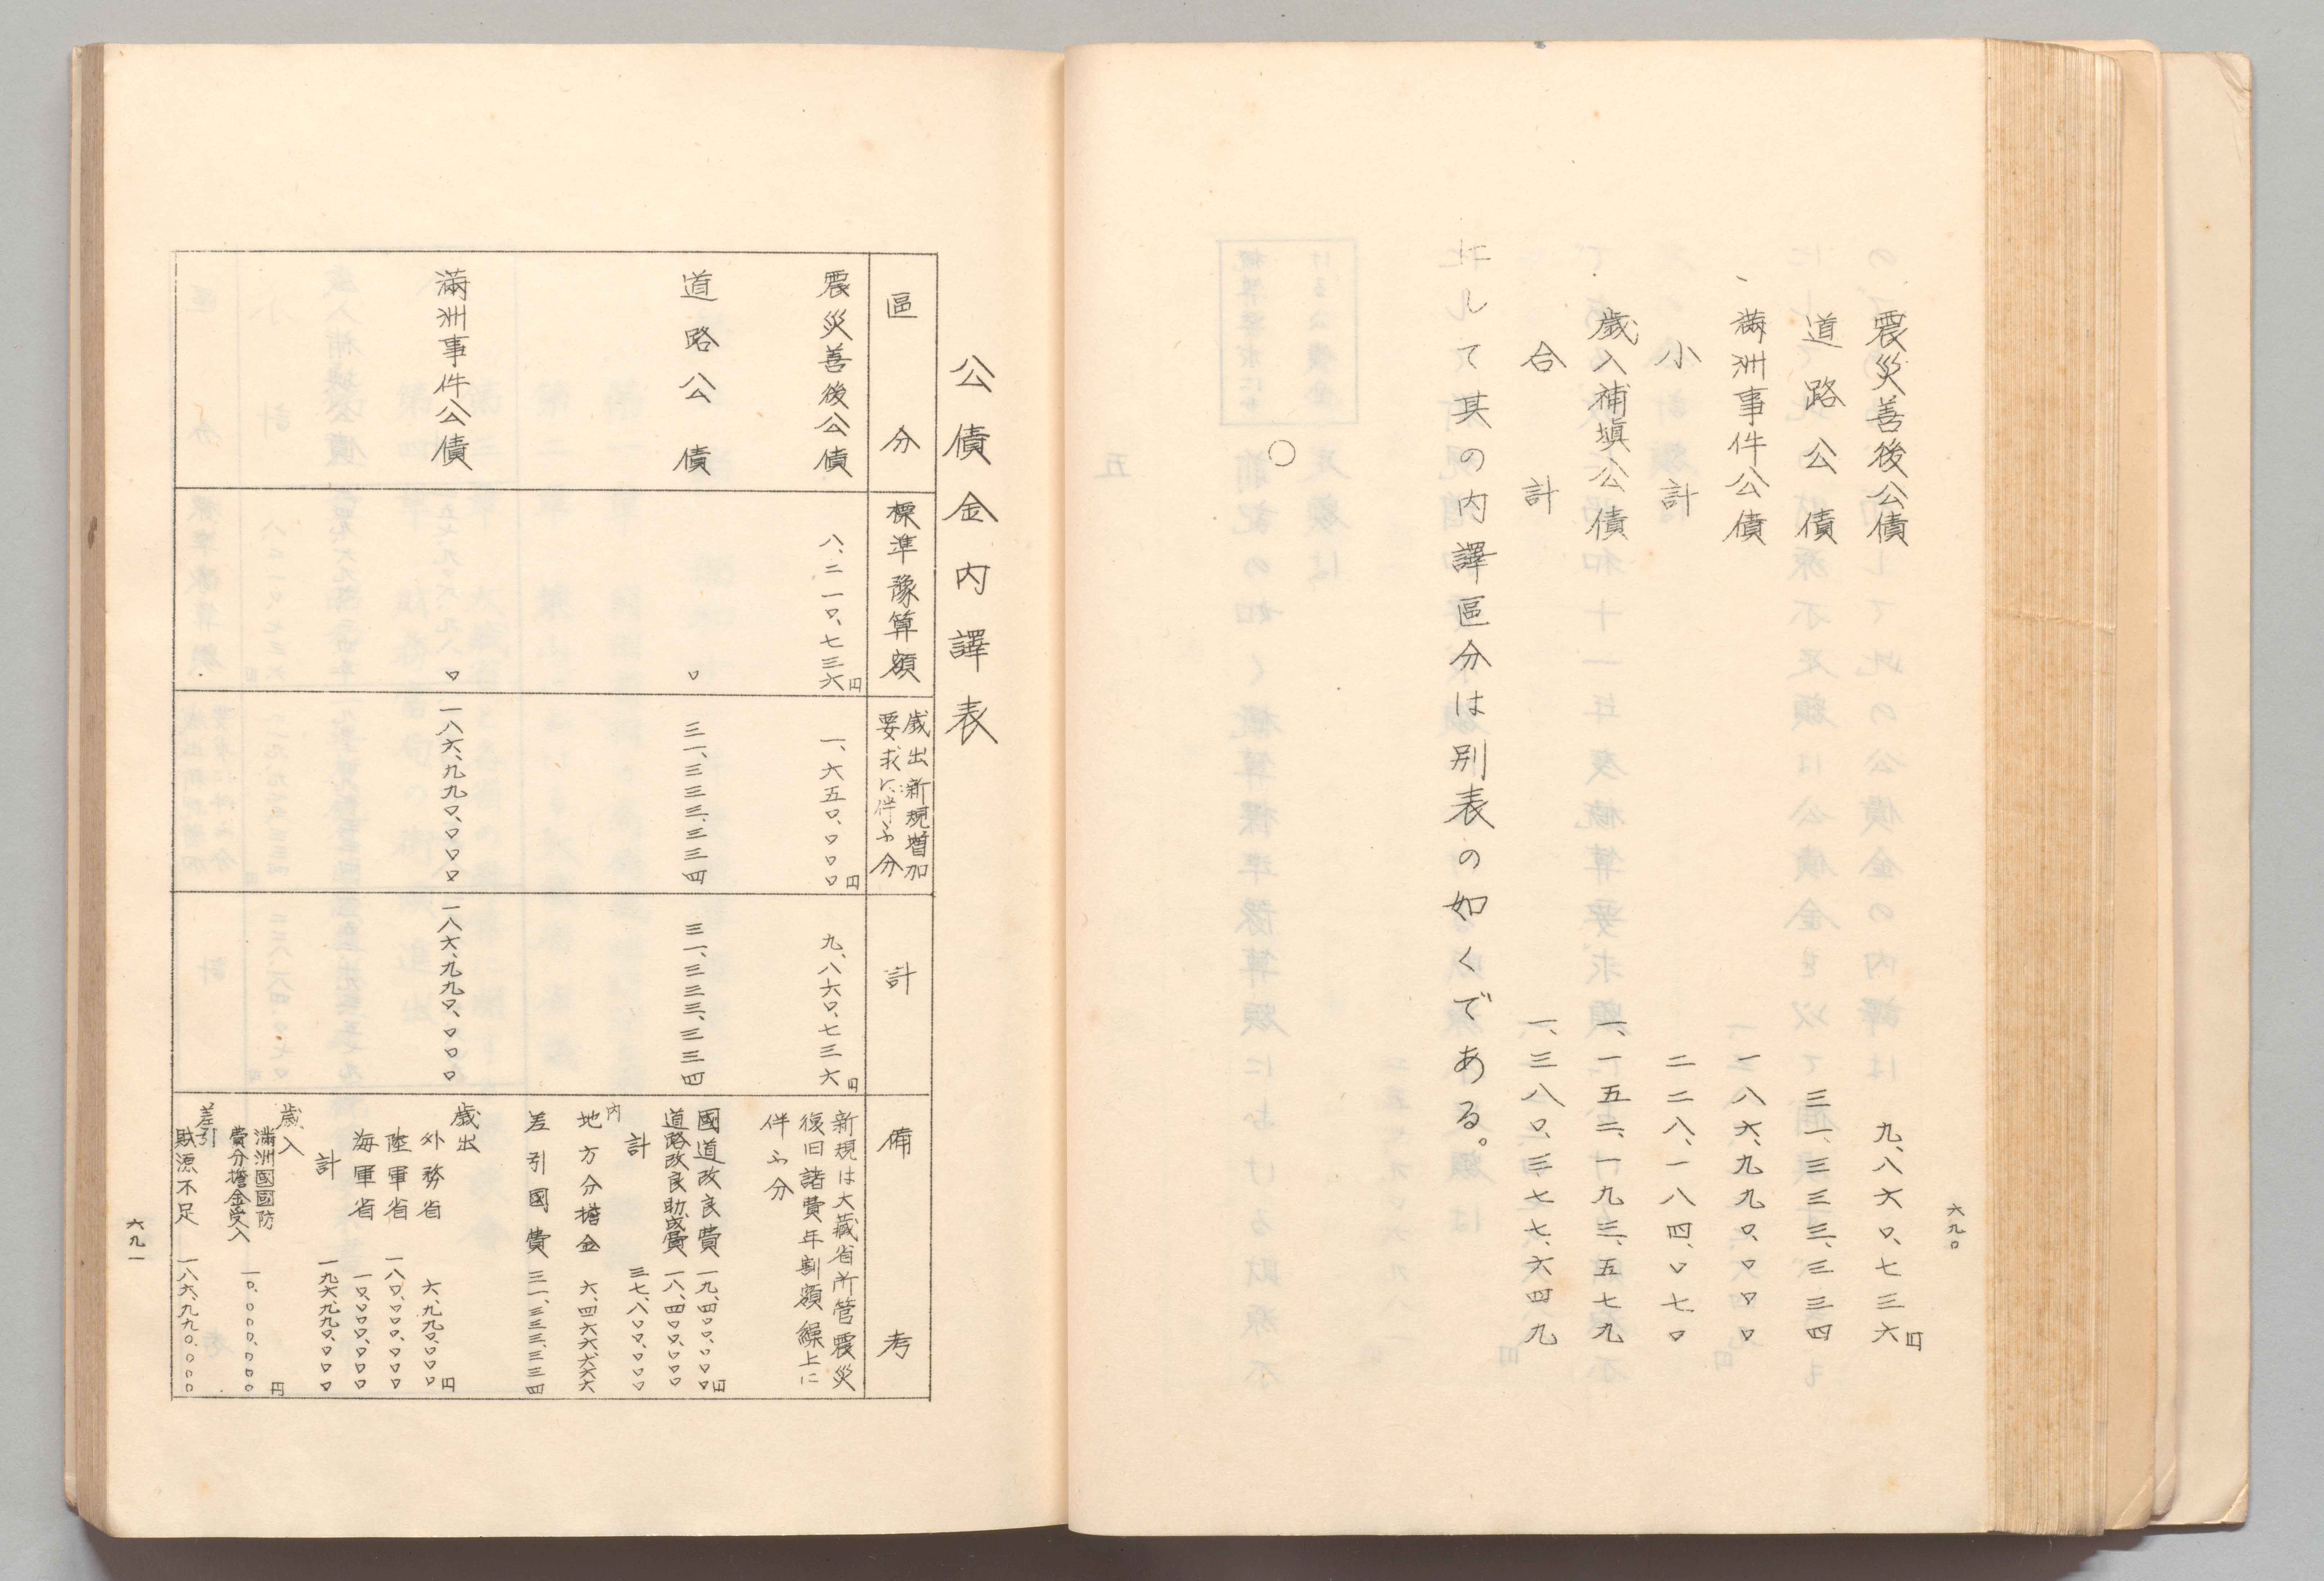 六九〇
震災善後公債 九、八六〇、七三六円
道路公債 三一、三三三、三三四
満洲事件公債 一八六、九九〇、〇〇〇
小計 二二八、一八四、〇七〇
歳入補塡公債 一、一五二、一九三、五七九
合計 一、三八〇、三七七、六四九
にして其の内譯區分は別表の如くである。
公債金内譯表
區分 標準豫算額 歳出新規増加要求に伴ふ分 計 備考
震災善後公債 八、二一〇、七三六円 一、六五〇、〇〇〇円 九、八六〇、七三六円
新規は大藏省所管震災
復旧諸費年割額繰上に
伴ふ分
道路公債 〇 三一、三三三、三三四 三一、三三三、三三四
國道改良費 一九、四〇〇、〇〇〇円
道路改良助成費 一八、四〇〇、〇〇〇
計 三七、八〇〇、〇〇〇
内
地方分擔金 六、四六六、六六六
差引國費 三一、三三三、三三四
滿洲事件公債 〇 一八六、九九〇、〇〇〇 一八六、九九〇、〇〇〇
歳出
外務省 六、九九〇、〇〇〇円
陸軍省 一八〇、〇〇〇、〇〇〇
海軍省 一〇、〇〇〇、〇〇〇
計 一九六、九九〇、〇〇〇
歳入
滿洲國國防
費分擔金受入 一〇、〇〇〇、〇〇〇円
差引
財源不足 一八六、九九〇、〇〇〇
六九一